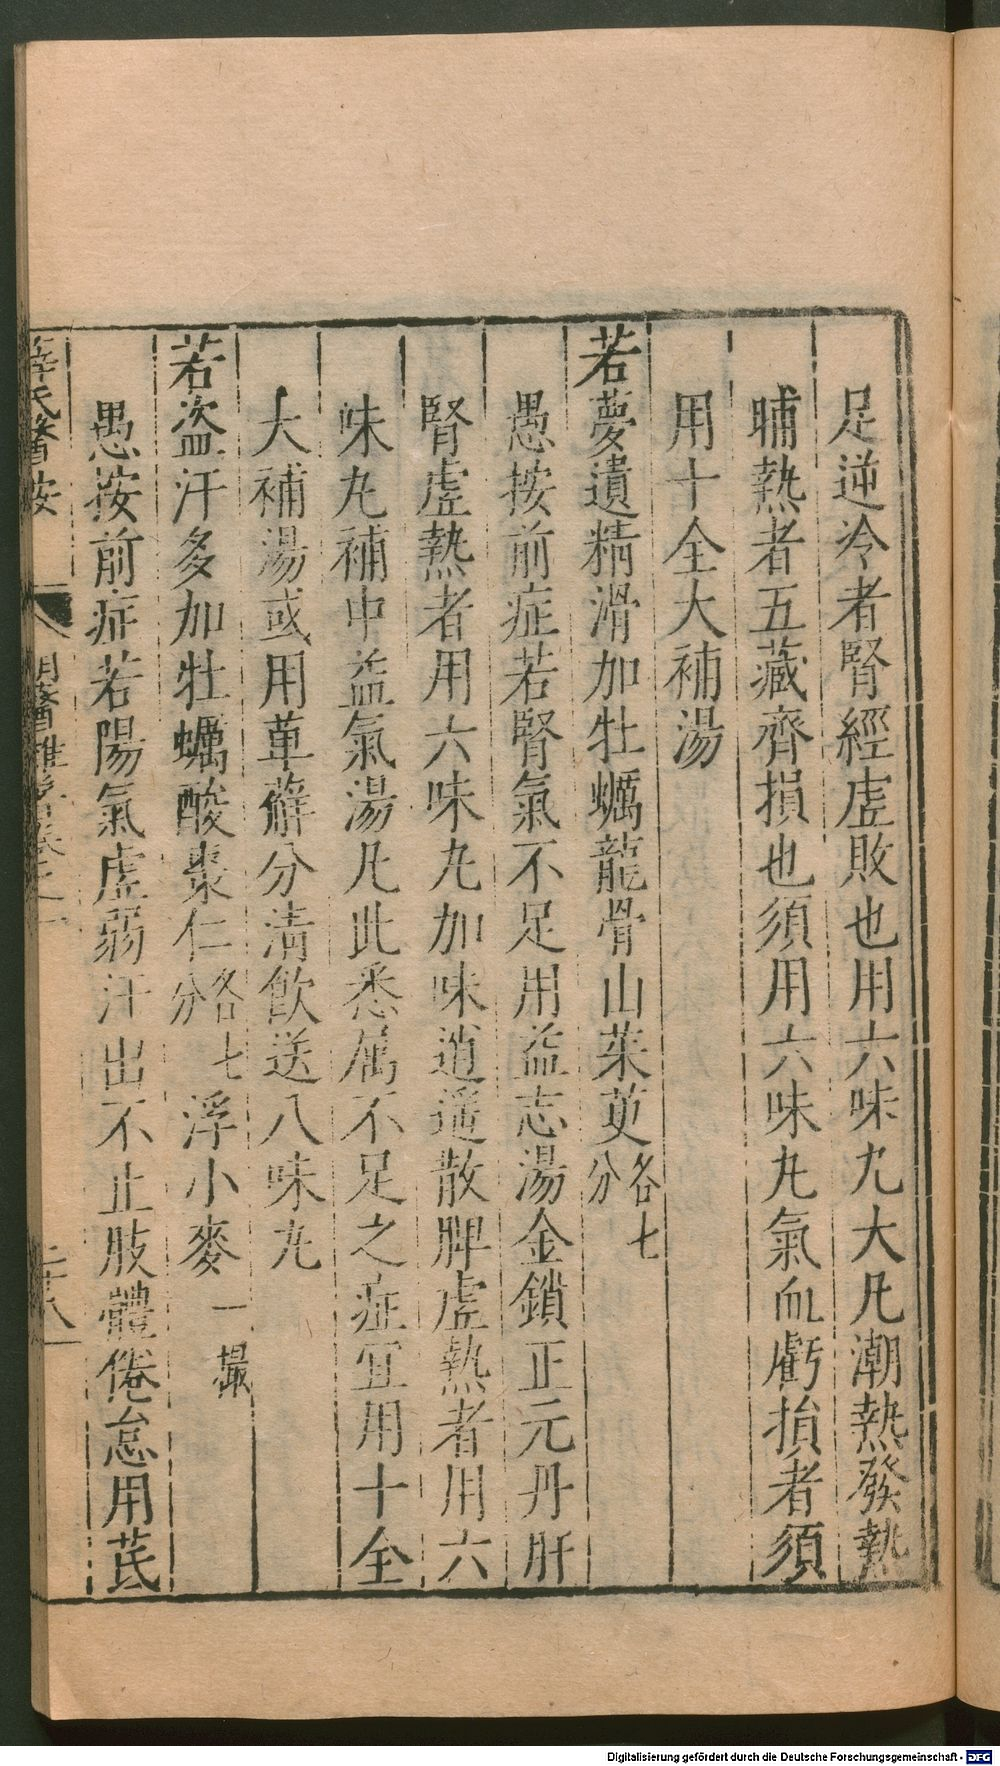 足逆冷者腎經虛敗也用六味九大凡潮熱發熱
晡熱者五藏齊損也須用六味丸氣血虧損者須
用十全大補湯
若夢遺精滑加牡蠣龍骨山茱萸各七分
愚按前症若腎氣不足用益志湯金鎖正元丹肝
腎虛熱者用六味丸加味逍遥散脾虛熱者用六
味丸補中益氣湯凡此悉属不足之症宜用十全
大補湯或用萆薢分清飲送八味丸
若盜汗多加牡蠣酸棗仁各七分浮小麥一撮
愚按前症若陽氣虛弱汗出不止肢體倦怠用茋
薛氏醫按 明醫雜著卷之一 二十八
Digitalisierung gefördert durch die Deutsche Forschungsgemeinschaft - DFG